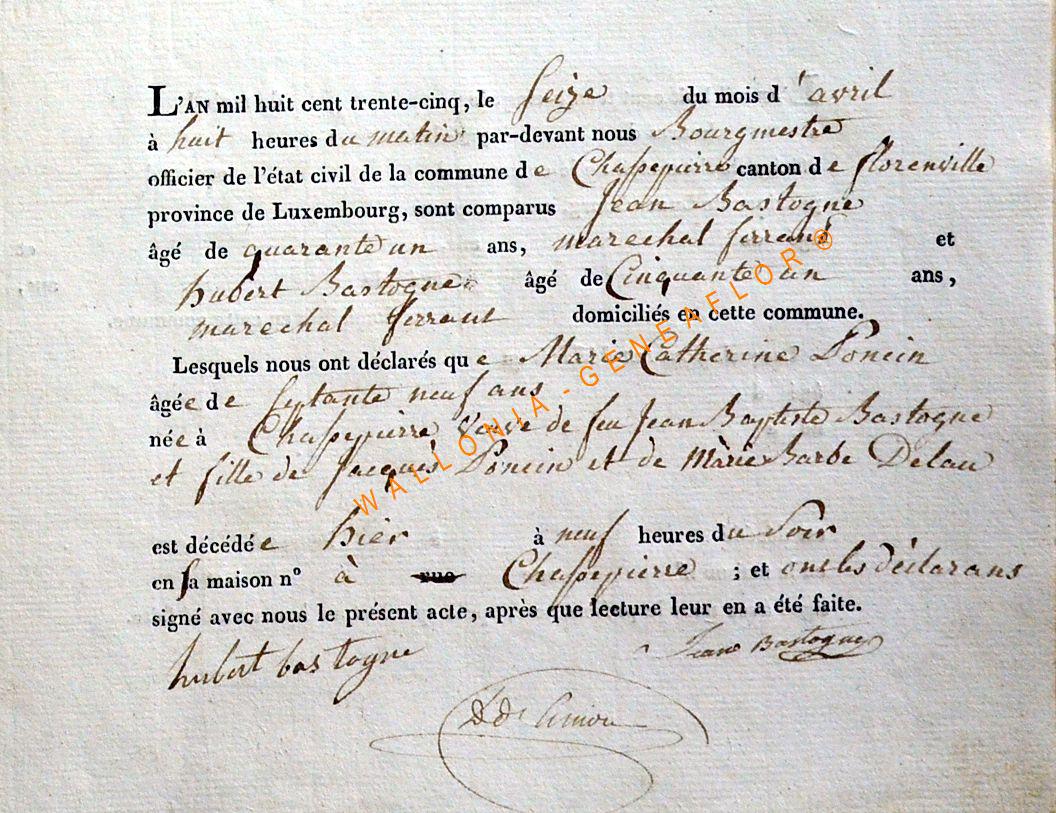 L'AN mil huit cent trente-cinq, le Seize du mois d'avril
à huit heures du matin par-devant nous Bourgmestre
officier de l'état civil de la commune de Chassepierre canton de florenville
province de Luxembourg, sont comparus Jean Bastogne
âgé de quarante un ans, marechal ferrant et
hubert Bastogne âgé de Cinquante un ans,
marechal ferrant domiciliés en cette commune.
Lesquels nous ont déclarés que Marie Catherine Poncin
âgée de septante neuf ans
née à Chassepierre veuve de feu Jean Baptiste Bastogne
et fille de Jacques Poncin et de Marie Barbe Delau
est décédée hier à neuf heures du Soir
en sa maison n° à rue Chassepierre ; et ont les déclarans
signé avec nous le présent acte, après que lecture leur en a été faite.
hubert bastogne Jean Bastogne
WALLONIA-GENEAFLOR®